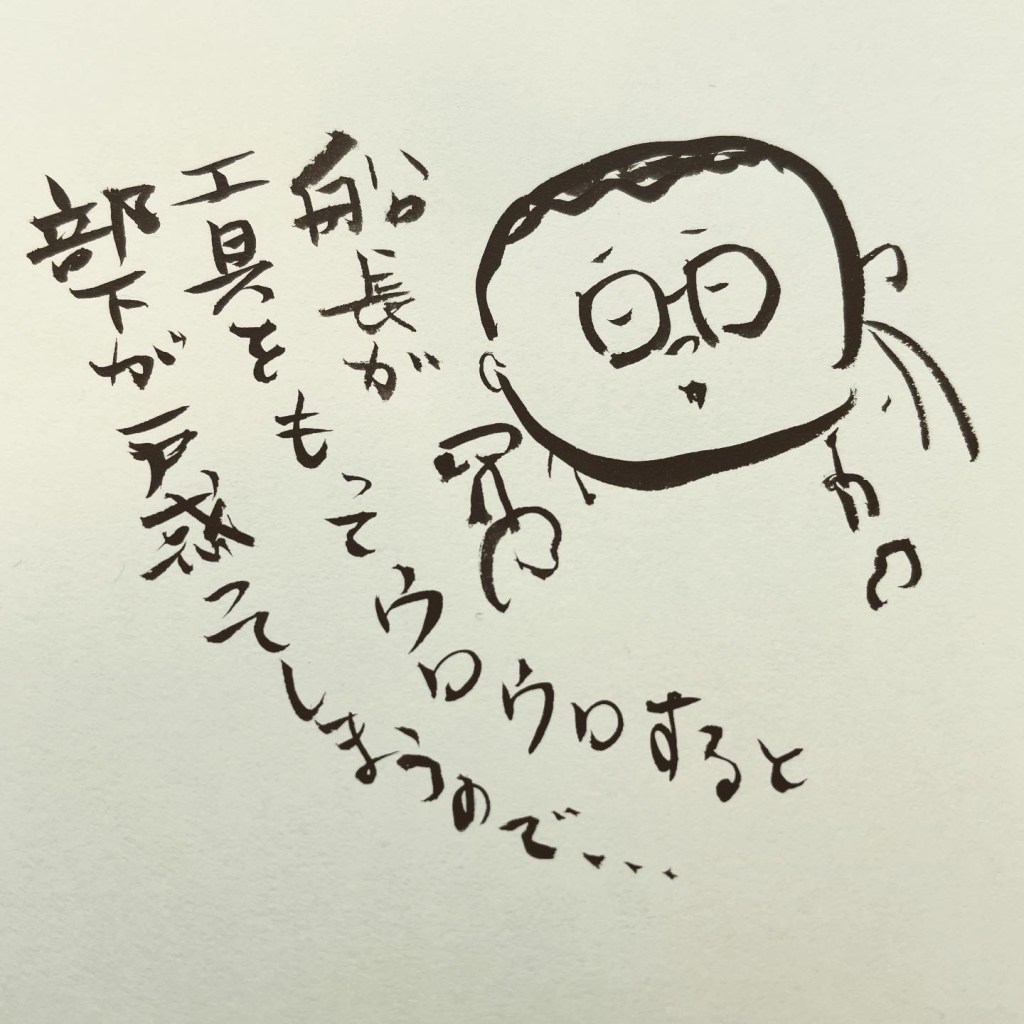 船長が
工具をもってウロウロすると
部下が戸惑ってしまうので...